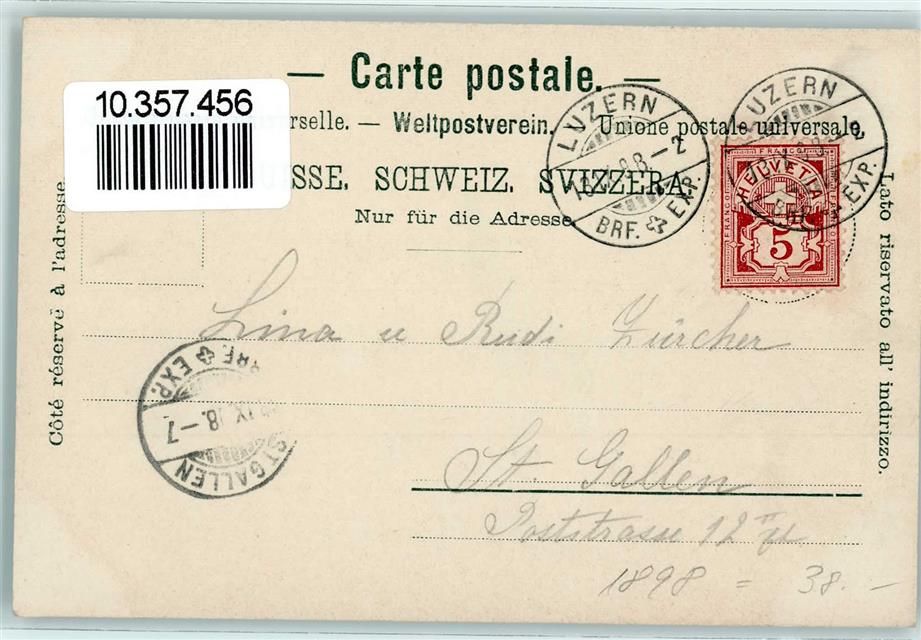 — Carte postale. —
10.357.456
rselle. — Weltpostverein. Unione postale universale.
ISSE. SCHWEIZ. SVIZZERA.
Nur für die Adresse
Côté réservé à l'adresse
Lato riservato all' indirizzo.
LUZERN
98.–2
BRF. EXP.
LUZERN
EXP.
FRANCO
HELVETIA
5
Lina u Rudi Zürcher
BRF. EXP.
IX 98.–7
ST GALLEN
St. Gallen
Poststrasse 12
1898 = 38.–